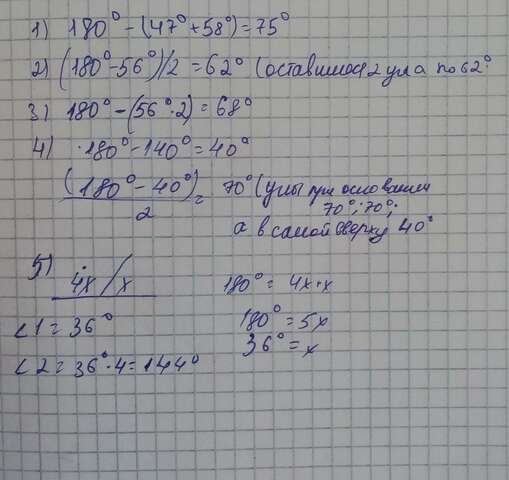 1) 180° - (47° + 58°) = 75°
2) (180° - 56°)/2 = 62° (оставшиеся 2 угла по 62°
3) 180° - (56° · 2) = 68°
4) 180° - 140° = 40°
(180° - 40°) = 70° (углы при основании
2
70°; 70°;
а в самой сверху 40°
5)
4x / x 180° = 4x + x
∠1 = 36° 180° = 5x
36° = x
∠2 = 36° · 4 = 144°